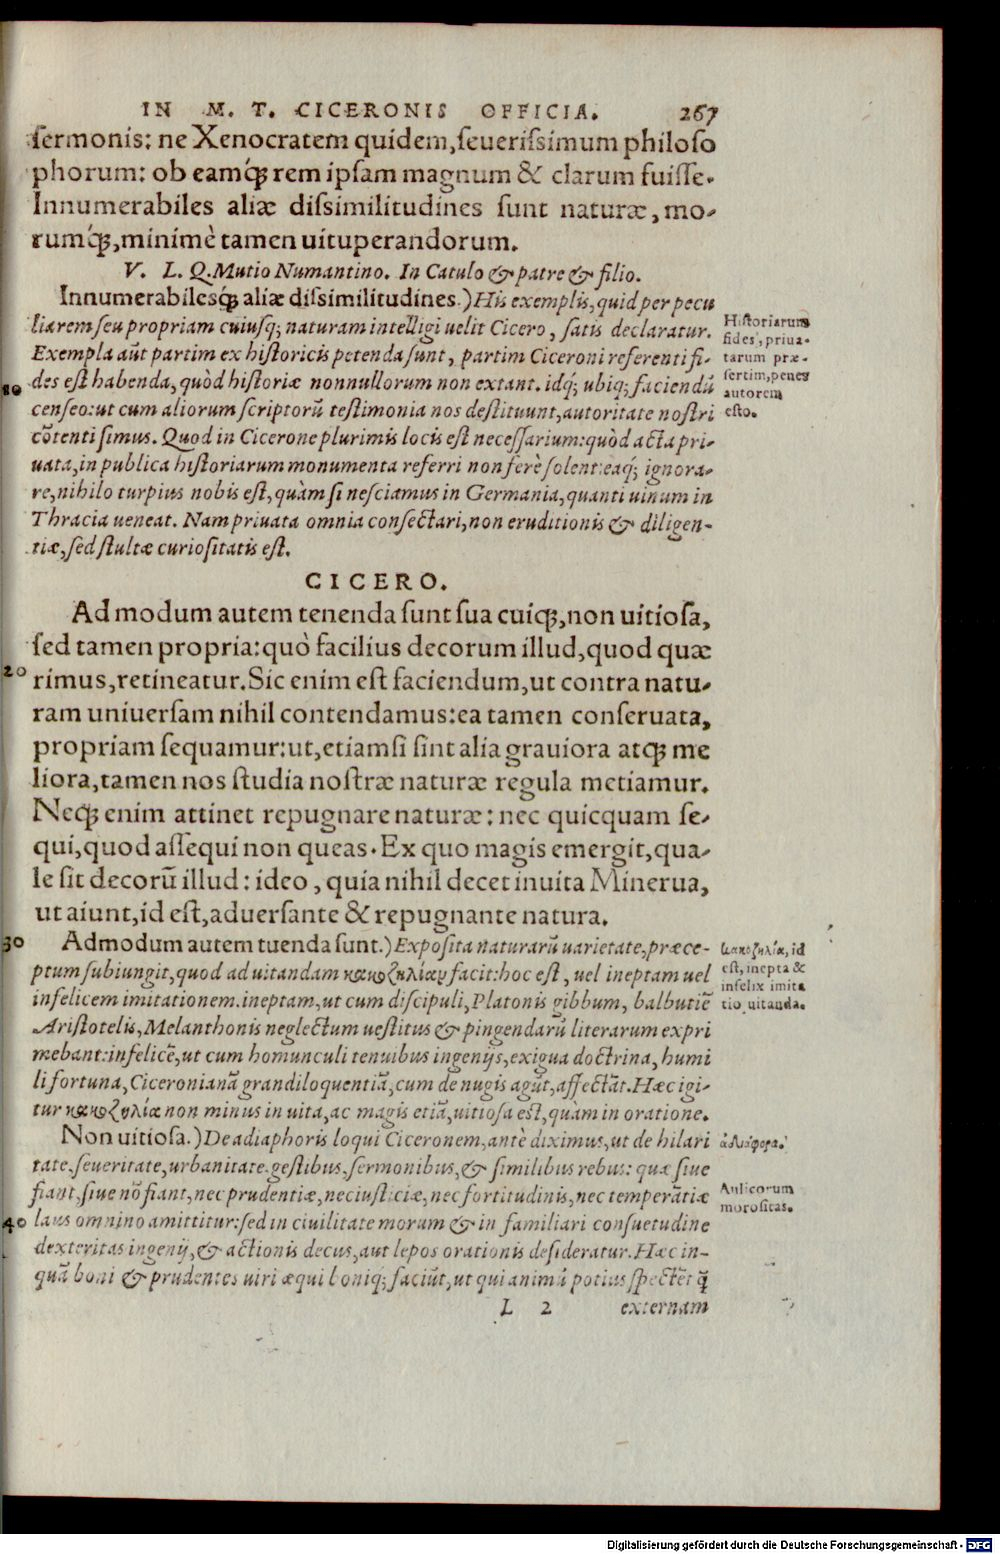 IN M. T. CICERONIS OFFICIA. 267
sermonis: ne Xenocratem quidem, seuerissimum philoso
phorum: ob eamq́; rem ipsam magnum & clarum fuisse.
Innumerabiles aliæ dissimilitudines sunt naturæ, mo-
rumq́;, minimè tamen uituperandorum.
V. L. Q. Mutio Numantino. In Catulo & patre & filio.
Innumerabilesq́; aliæ dissimilitudines.) His exemplis, quid per pecu
liarem seu propriam cuiusq; naturam intelligi uelit Cicero, satis declaratur.
Exempla aūt partim ex historicis petenda sunt, partim Ciceroni referenti fi-
des est habenda, quòd historiæ nonnullorum non extant. idq́; ubiq; faciendū
censeo: ut cum aliorum scriptorū testimonia nos destituunt, autoritate nostri
cōtenti simus. Quod in Cicerone plurimis locis est necessarium: quòd acta pri-
uata, in publica historiarum monumenta referri non ferè solent: eaq́; ignora-
re, nihilo turpius nobis est, quàm si nesciamus in Germania, quanti uinum in
Thracia ueneat. Nam priuata omnia consectari, non eruditionis & diligen-
tiæ, sed stultæ curiositatis est.
Historiarum
fides, priua-
tarum præ-
sertim, penes
autorem
esto.
10
CICERO.
Ad modum autem tenenda sunt sua cuiq́;, non uitiosa,
sed tamen propria: quò facilius decorum illud, quod quæ
20
rimus, retineatur. Sic enim est faciendum, ut contra natu-
ram uniuersam nihil contendamus: ea tamen conseruata,
propriam sequamur: ut, etiamsi sint alia grauiora atq́; me
liora, tamen nos studia nostræ naturæ regula metiamur.
Neq́; enim attinet repugnare naturæ: nec quicquam se-
qui, quod assequi non queas. Ex quo magis emergit, qua-
le sit decorū illud: ideo, quia nihil decet inuita Minerua,
ut aiunt, id est, aduersante & repugnante natura.
30
Admodum autem tuenda sunt.) Exposita naturarū uarietate, præce-
ptum subiungit, quod ad uitandam κακοζηλίαν facit: hoc est, uel ineptam uel
infelicem imitationem. ineptam, ut cum discipuli, Platonis gibbum, balbutiē
Aristotelis, Melanthonis neglectum uestitus & pingendarū literarum expri
mebant: infelicē, ut cum homunculi tenuibus ingenijs, exigua doctrina, humi
li fortuna, Ciceronianā grandiloquentiā, cum de nugis agūt, affectāt. Hæc igi-
tur κακοζηλία non minus in uita, ac magis etiā, uitiosa est, quàm in oratione.
κακοζηλία, id
est, inepta &
infelix imita
tio uitanda.
Non uitiosa.) De adiaphoris loqui Ciceronem, antè diximus, ut de hilari
tate, seueritate, urbanitate. gestibus, sermonibus, & similibus rebus: quæ siue
fiant, siue nō fiant, nec prudentiæ, nec iusticiæ, nec fortitudinis, nec temperātiæ
laus omnino amittitur: sed in ciuilitate morum & in familiari consuetudine
dexteritas ingenij, & actionis decus, aut lepos orationis desideratur. Hæc in-
quā boni & prudentes uiri æqui boniq́; faciūt, ut qui animū potius spectēt q̄̄
ἀδιάφορα.
Aulicorum
morositas.
40
L 2 externam
Digitalisierung gefördert durch die Deutsche Forschungsgemeinschaft - DFG